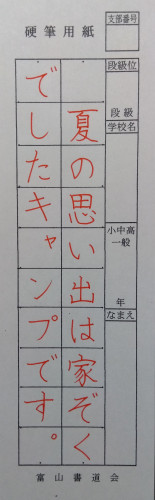 硬筆用紙
支部番号
段級位
段級
学校名
小中高
一般
年
なまえ
夏の思い出は家ぞく
でしたキャンプです。
富山書道会